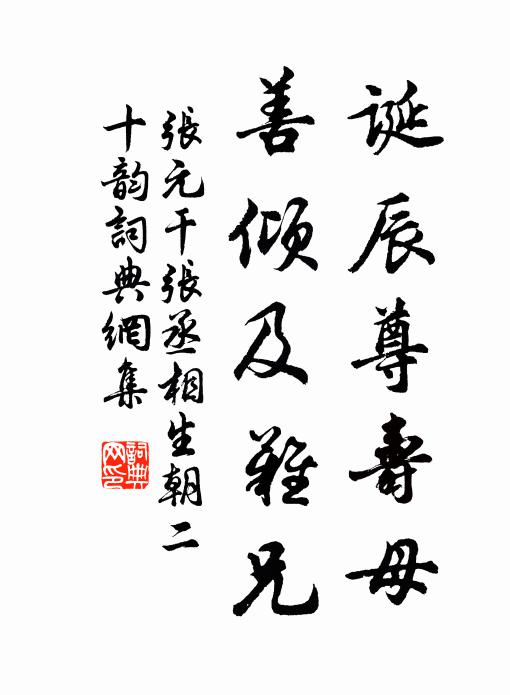 誕辰尊壽母
善傾及難兄
張元干張丞相生朝二
十韵詞典網集
詞典
网印